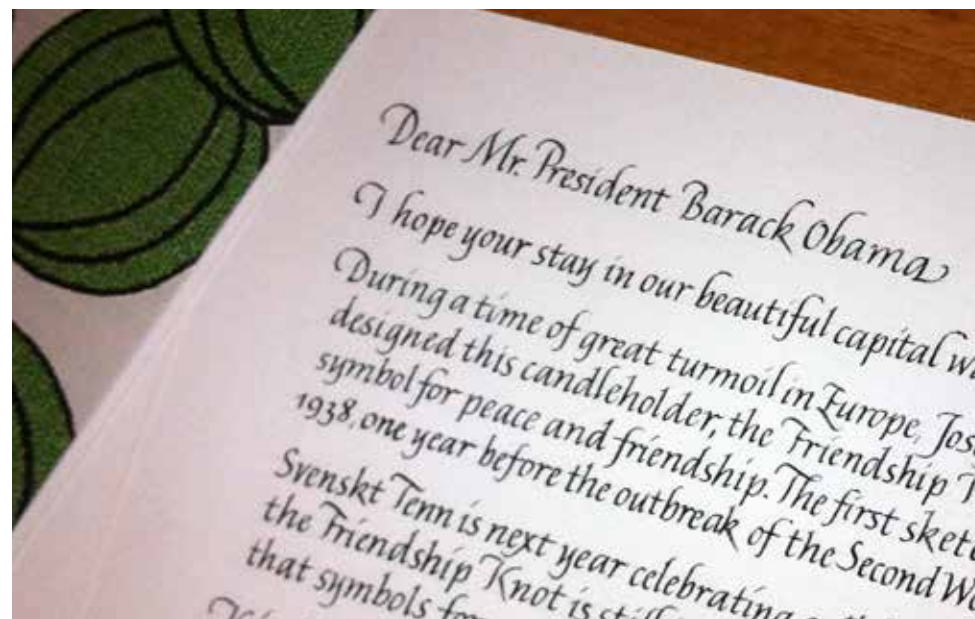 Dear Mr. President Barack Obama
I hope your stay in our beautiful capital
During a time of great turmoil in Europe, Jos
designed this candleholder, the Friendship
symbol for peace and friendship. The first sket
1938, one year before the outbreak of the Second W
Svenskt Tenn is next year celebrating
the Friendship Knot is still
that symbols for